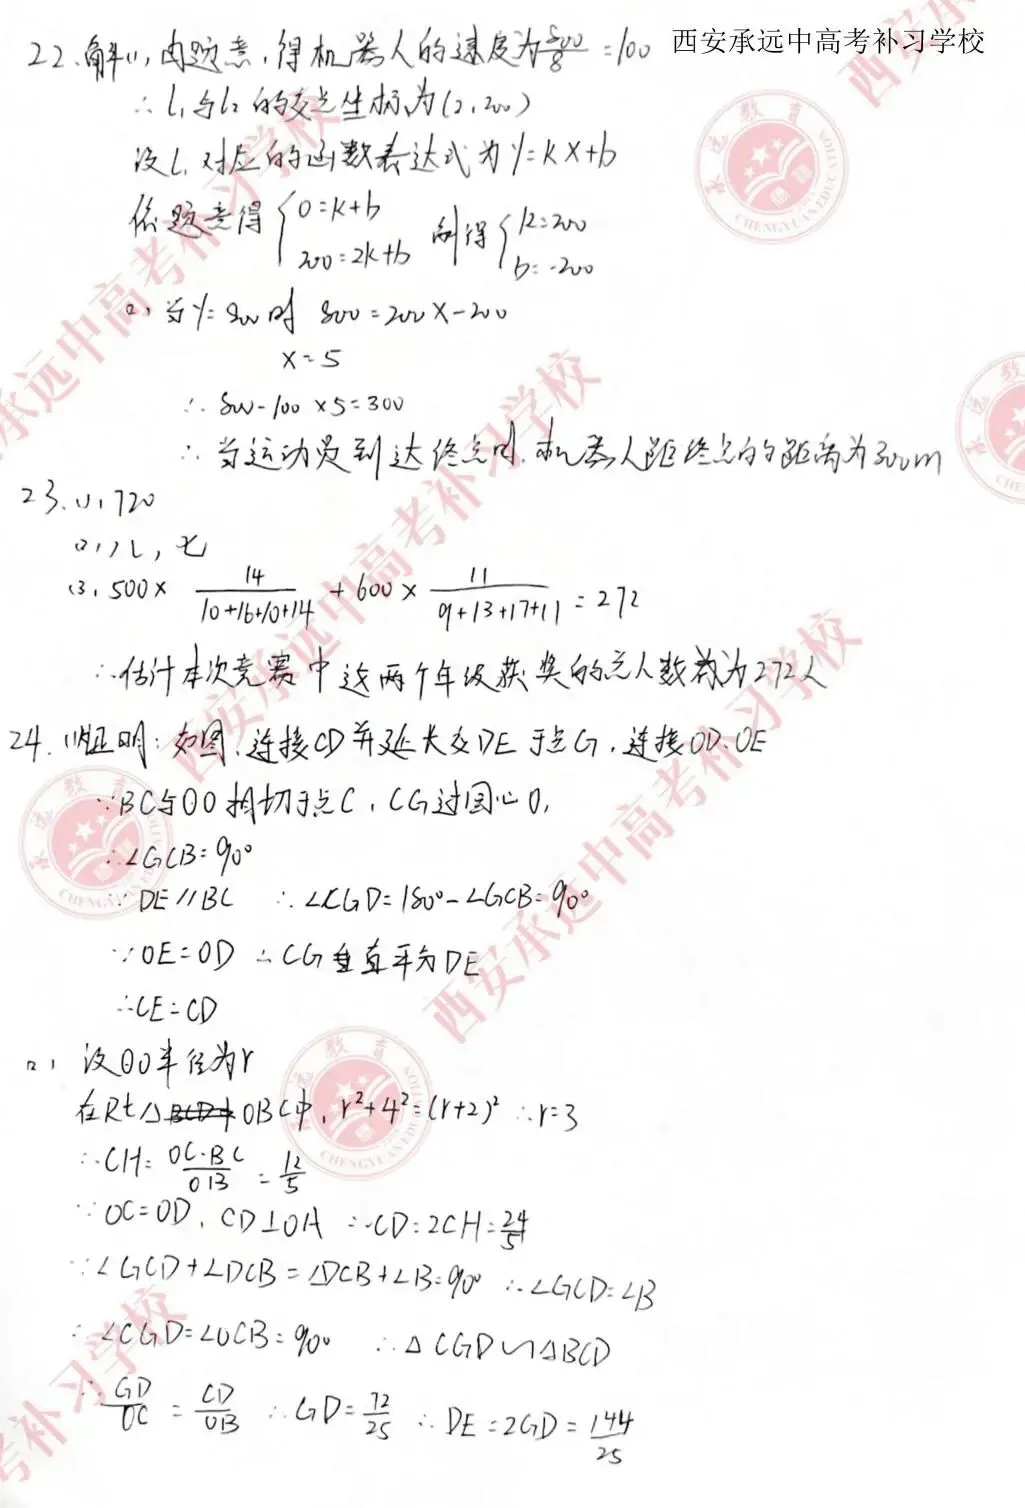 西安承远中高考补习学校
22.解(1)由题意,得机器人的速度为800/8=100
∴l₁与l₂的交点坐标为(2,200)
设l₁对应的函数表达式为y=kx+b
依题意得{0=k+b 200=2k+b 解得{k=200 b=-200
(2)当y=800时 800=200x-200
x=5
∴800-100×5=300
∴当运动员到达终点时,机器人距终点的距离为300m
23.(1)720
(2)八,七
(3)500×14/(10+16+10+14)+600×11/(9+13+17+11)=272
∴估计本次竞赛中这两个年级获奖的总人数为272人
24.(1)证明:如图,连接CO并延长交DE于点G,连接OD、OE
∵BC与⊙O相切于点C,CG过圆心O,
∴∠GCB=90°
∵DE//BC ∴∠CGD=180°-∠GCB=90°
∵OE=OD ∴CG垂直平分DE
∴CE=CD
(2)设⊙O半径为r
在Rt△OBC中,r²+4²=(r+2)² ∴r=3
∴CH=OC·BC/OB=12/5
∵OC=OD,CD⊥OA ∴CD=2CH=24/5
∵∠GCD+∠DCB=∠DCB+∠B=90° ∴∠GCD=∠B
∴∠CGD=∠OCB=90° ∴△CGD∽△BCO
∴GD/OC=CD/OB ∴GD=72/25 ∴DE=2GD=144/25
西安承远中高考补习学校
承远教育
CHENGYUAN EDUCATION